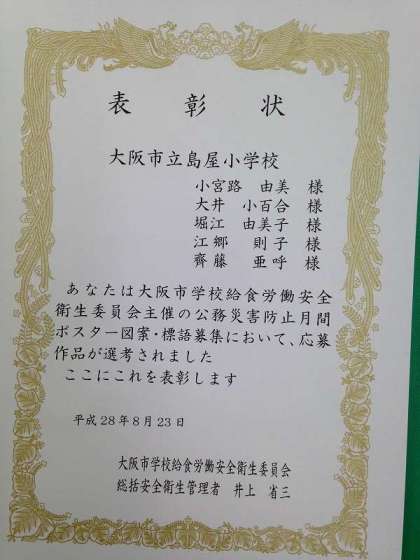 表彰状
大阪市立島屋小学校
小宮路 由美 様
大井 小百合 様
堀江 由美子 様
江郷 則子 様
齊藤 亜呼 様
あなたは大阪市学校給食労働安全
衛生委員会主催の公務災害防止月間
ポスター図案・標語募集において、応募
作品が選考されました
ここにこれを表彰します
平成28年8月23日
大阪市学校給食労働安全衛生委員会
総括安全衛生管理者 井上 省三